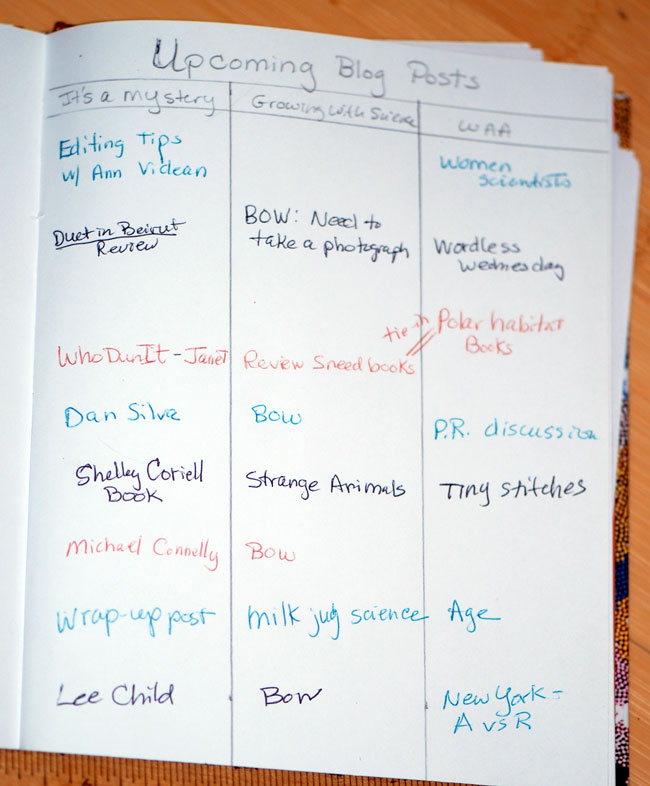 Upcoming Blog Posts
It's a mystery
Growing with Science
WAA
Editing Tips
w/ Ann Videan
Women
Scientists
Duet in Beirut
Review
BOW: Need to
take a photograph
Wordless
Wednesday
WhoDunIt - Janet
Review Sneed books
tie in
Polar habitat
Books
Dan Silva
Bow
P.R. discussion
Shelley Coriell
Book
Strange Animals
Tiny stitches
Michael Connelly
Bow
Wrap-up post
milk jug science
Age
Lee Child
Bow
New York -
A vs R